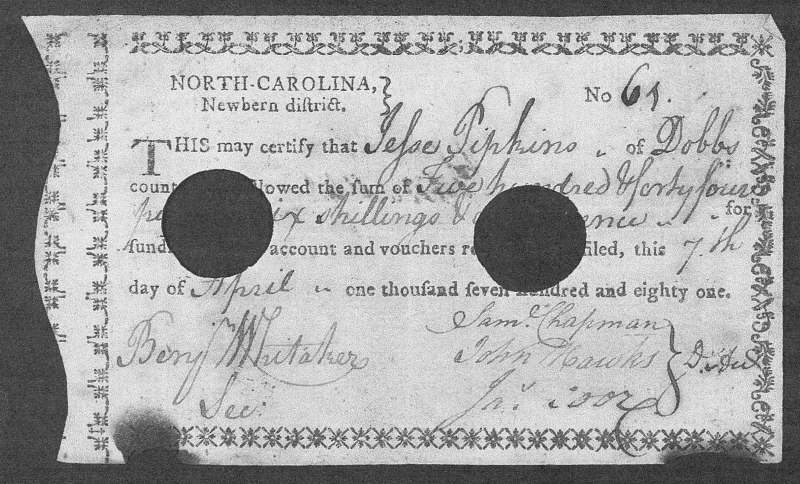 NORTH-CAROLINA,
Newbern diſtrict.
No 61.
THIS may certify that Jeſse Pipkins of Dobbs
count llowed the ſum of Five hundred & forty four
p ix shillings & ence for
ſund account and vouchers re iled, this 7th
day of April one thouſand ſeven hundred and eighty one.
Benj Whitaker
Sec:
Saml Chapman
John Hawks
Jas Coor